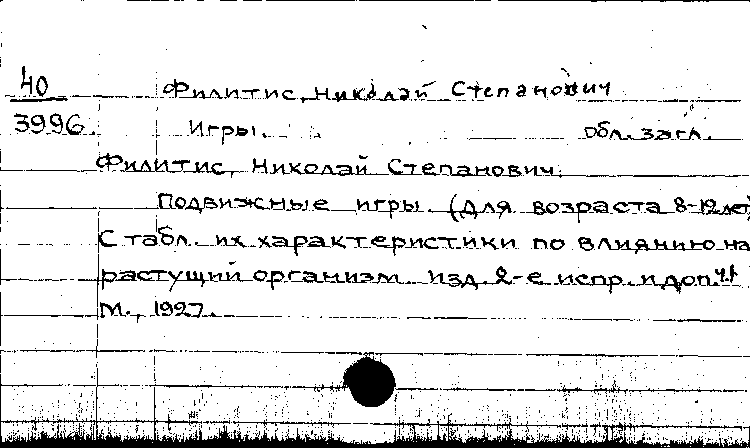 40 Филитис, Николай Степанович
3996. Игры. Обл. загл.
Филитис, Николай Степанович.
Подвижные игры. (Для возраста 8-12 лет)
С табл. их характеристики по влиянию на
растущий организм. изд. 2-е испр. и доп. ч.1
М., 1927.